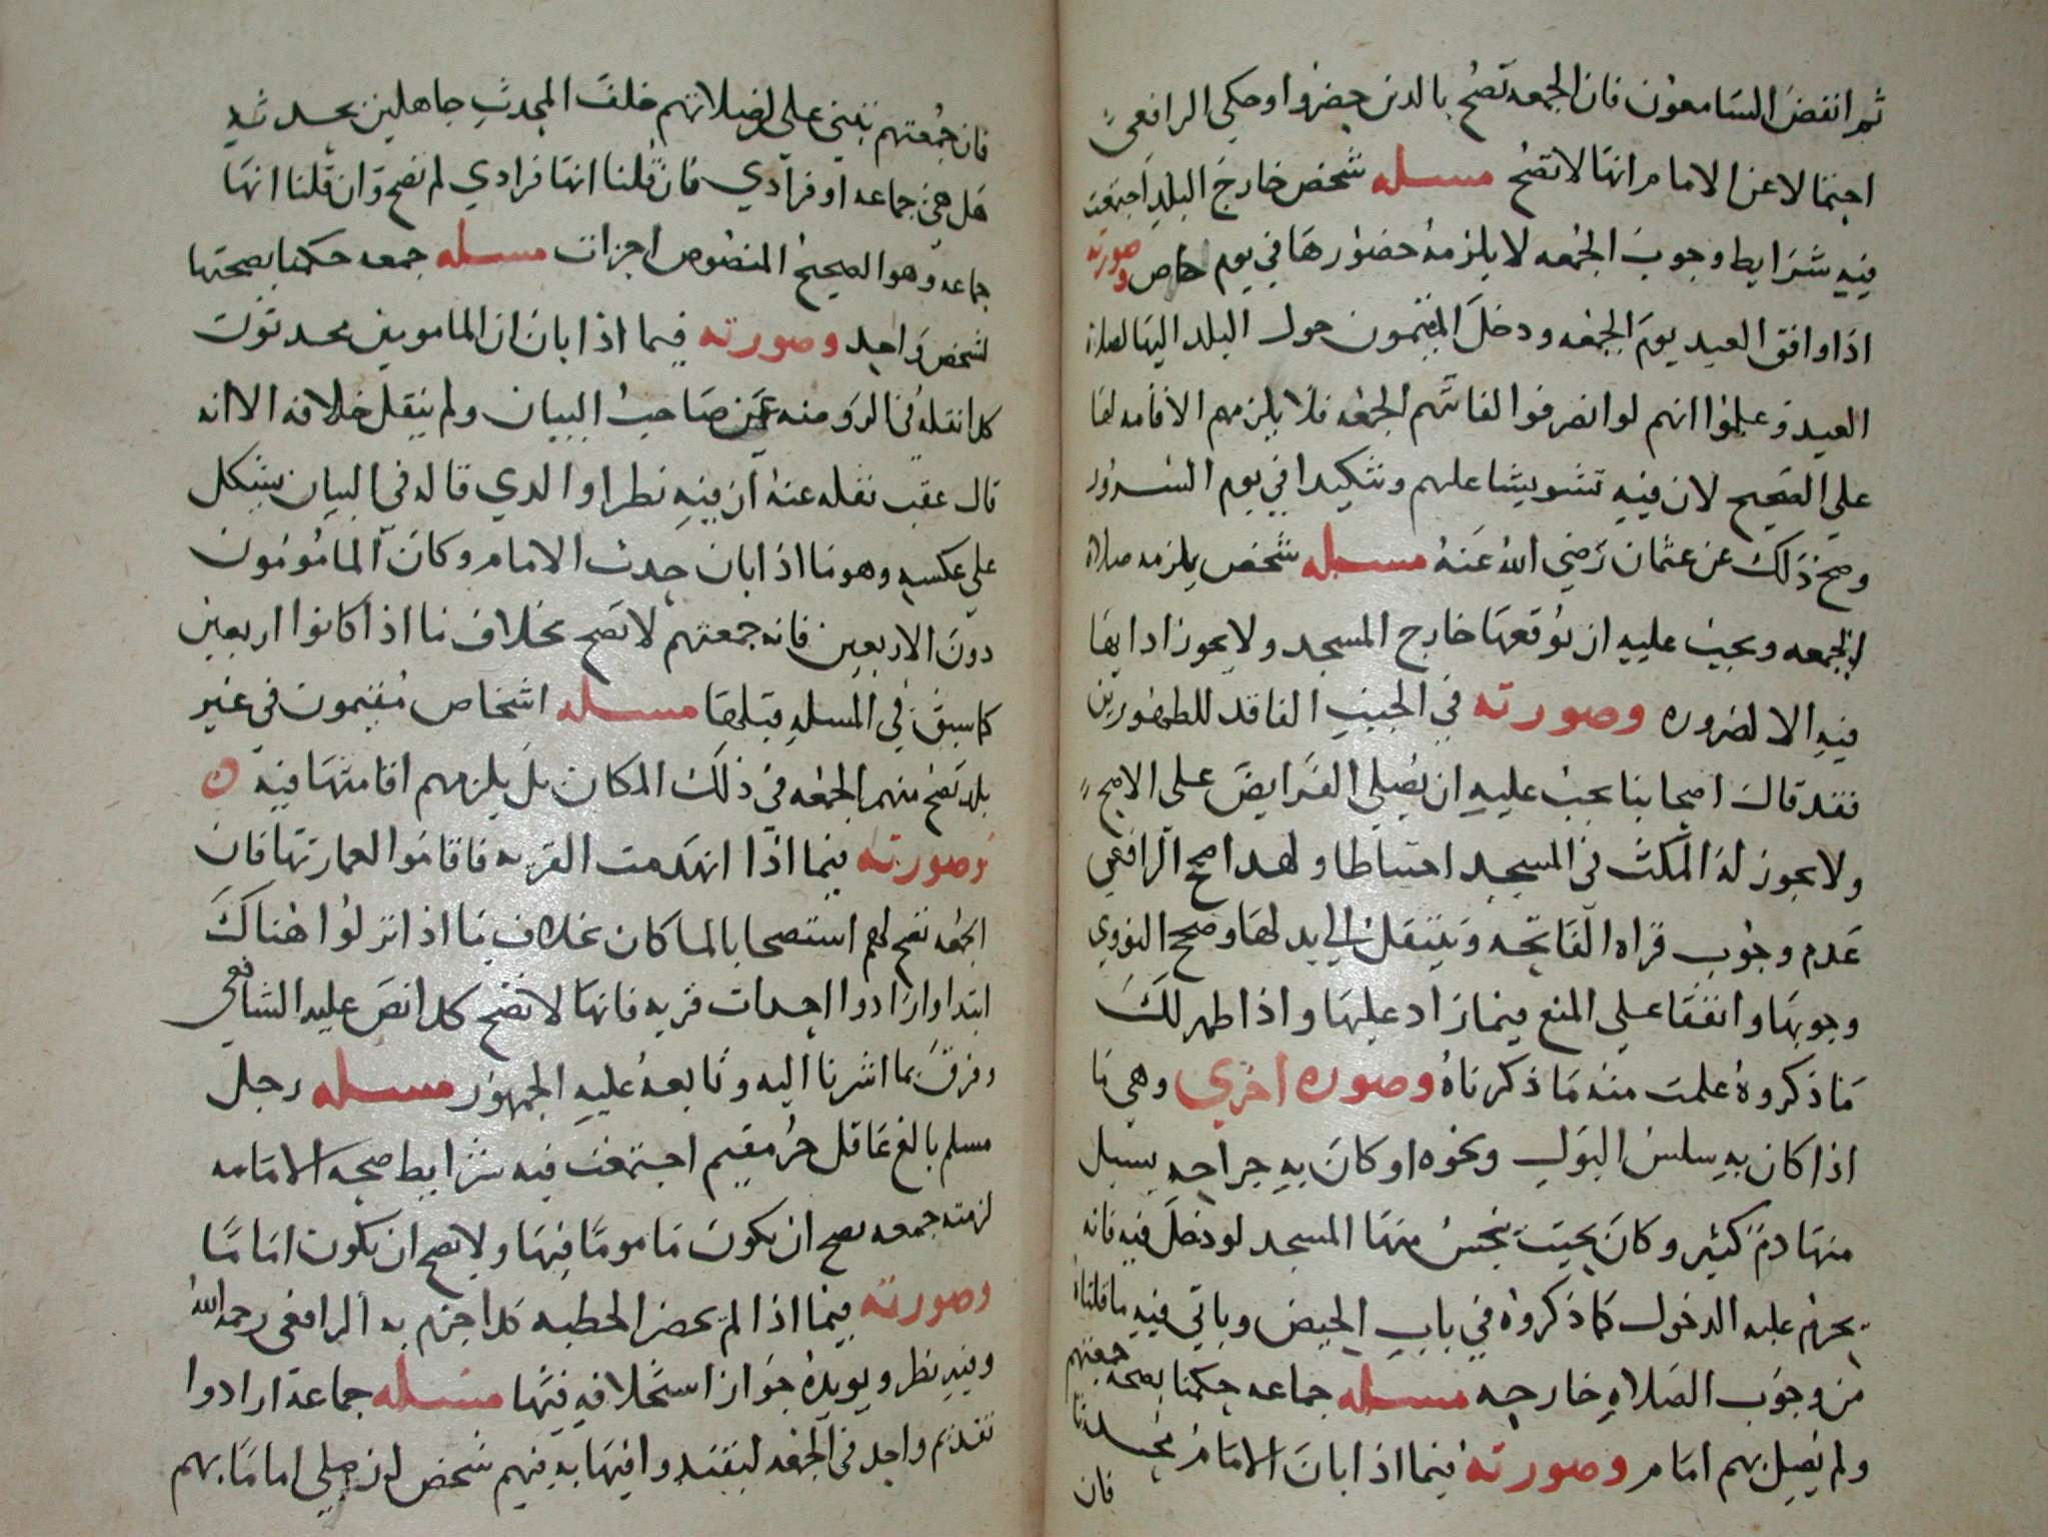 ثم انفض السامعون فان الجمعه تصح بالذين حضروا وحكي الرافعي
احتمالا عن الامام انها لا تصح مسله شخص خارج البلد اجتمعت
فيه شرايط وجوب الجمعه لا يلزمه حضورها في يوم خاص وصورته
اذا وافق العيد يوم الجمعه ودخل المقيمون حول البلد اليها لصلاة
العيد وعلموا انهم لو انصرفوا لفاتتهم الجمعه فلا يلزمهم الاقامه لها
علي الصحيح لان فيه تشويشا عليهم وتنكيدا في يوم السرور
وصح ذلك عن عثمان رضي الله عنه مسله شخص يلزمه صلاة
الجمعه ويجب عليه ان يوقعها خارج المسجد ولا يجوز ادايها
فيه الا لضروره وصورته في الجنب الفاقد للطهورين
فقد قال اصحابنا يجب عليه ان يصلي الفرايض علي الاصح
ولا يجوز له المكث في المسجد احتياطا ولهذا صحح الرافعي
عدم وجوب قراه الفاتحه وينتقل الي بدلها وصحح النووي
وجوبها واتفقا علي المنع فيما زاد عليها واذا ظهر لك
ما ذكروه علمت منه ما ذكرناه وصوره اخري وهي ما
اذا كان به سلس البول ونحوه او كان به جراحه يسيل
منها دم كثير وكان بحيث ينجس منها المسجد لو دخل فيه فانه
يحرم عليه الدخول كما ذكروه في باب الحيض وياتي فيه ما قلناه
من وجوب الصلاه خارجه مسله جماعه حكمنا بصحه جمعتهم
ولم يصل بهم امام وصورته فيما اذا ابان الامام محدثا
فان
فان جمعتهم تنبني علي ان صلاتهم خلف المحدث جاهلين بحدثه
هل هي جماعه او فرادي فان قلنا انها فرادي لم تصح وان قلنا انها
جماعه وهو الصحيح المنصوص اجزات مسله جمعه حكمنا بصحتها
لشخص واحد وصورته فيما اذا بان ان المامومين محدثون
كذا نقله في الروضه عن صاحب البيان ولم ينقل خلافه الا انه
قال عقب نقله عنه ان فيه نظرا والذي قاله في البيان يشكل
علي عكسه وهو ما اذا بان حدث الامام وكان المامومون
دون الاربعين فانه جمعتهم لا تصح بخلاف ما اذا كانوا اربعين
كما سبق في المسله قبلها مسله اشخاص مقيمون في غير
بلد تصح منهم الجمعه في ذلك المكان بل يلزمهم اقامتها فيه
وصورته فيما اذا انهدمت القريه فاقاموا لعمارتها فان
الجمعه تصح لهم استصحابا لما كان بخلاف ما اذا نزلوا هناك
ابتدا وارادوا احداث قريه فانها لا تصح كذا نص عليه الشافعي
وفرق بما اشرنا اليه وتابعه عليه الجمهور مسله رجل
مسلم بالغ عاقل حر مقيم اجتمعت فيه شرايط صحه الامامه
لزمته جمعه يصح ان يكون ماموما فيها ولا يصح ان يكون اماما
وصورته فيما اذا لم يحضر الخطبه كذا جزم به الرافعي رحمه الله
وفيه نظر ويويده جواز استخلافه فيها مسله جماعة ارادوا
تقديم واحد في الجمعه ليقتدوا فيها به فيهم شخص لو صلي اماما بهم